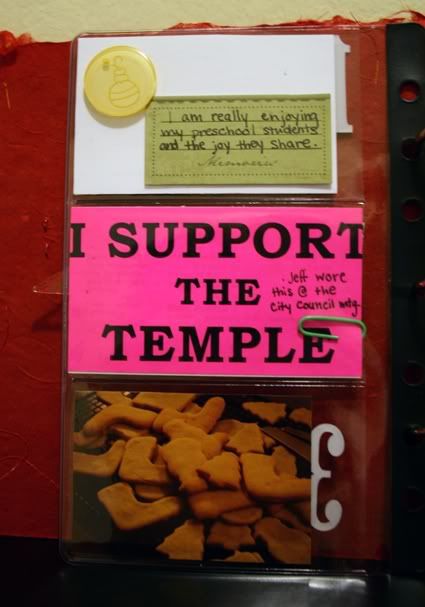 I am really enjoying
my preschool students
and the joy they share.
Memories
I SUPPORT
THE
TEMPLE
Jeff wore
this @ the
City Council mtg.
3